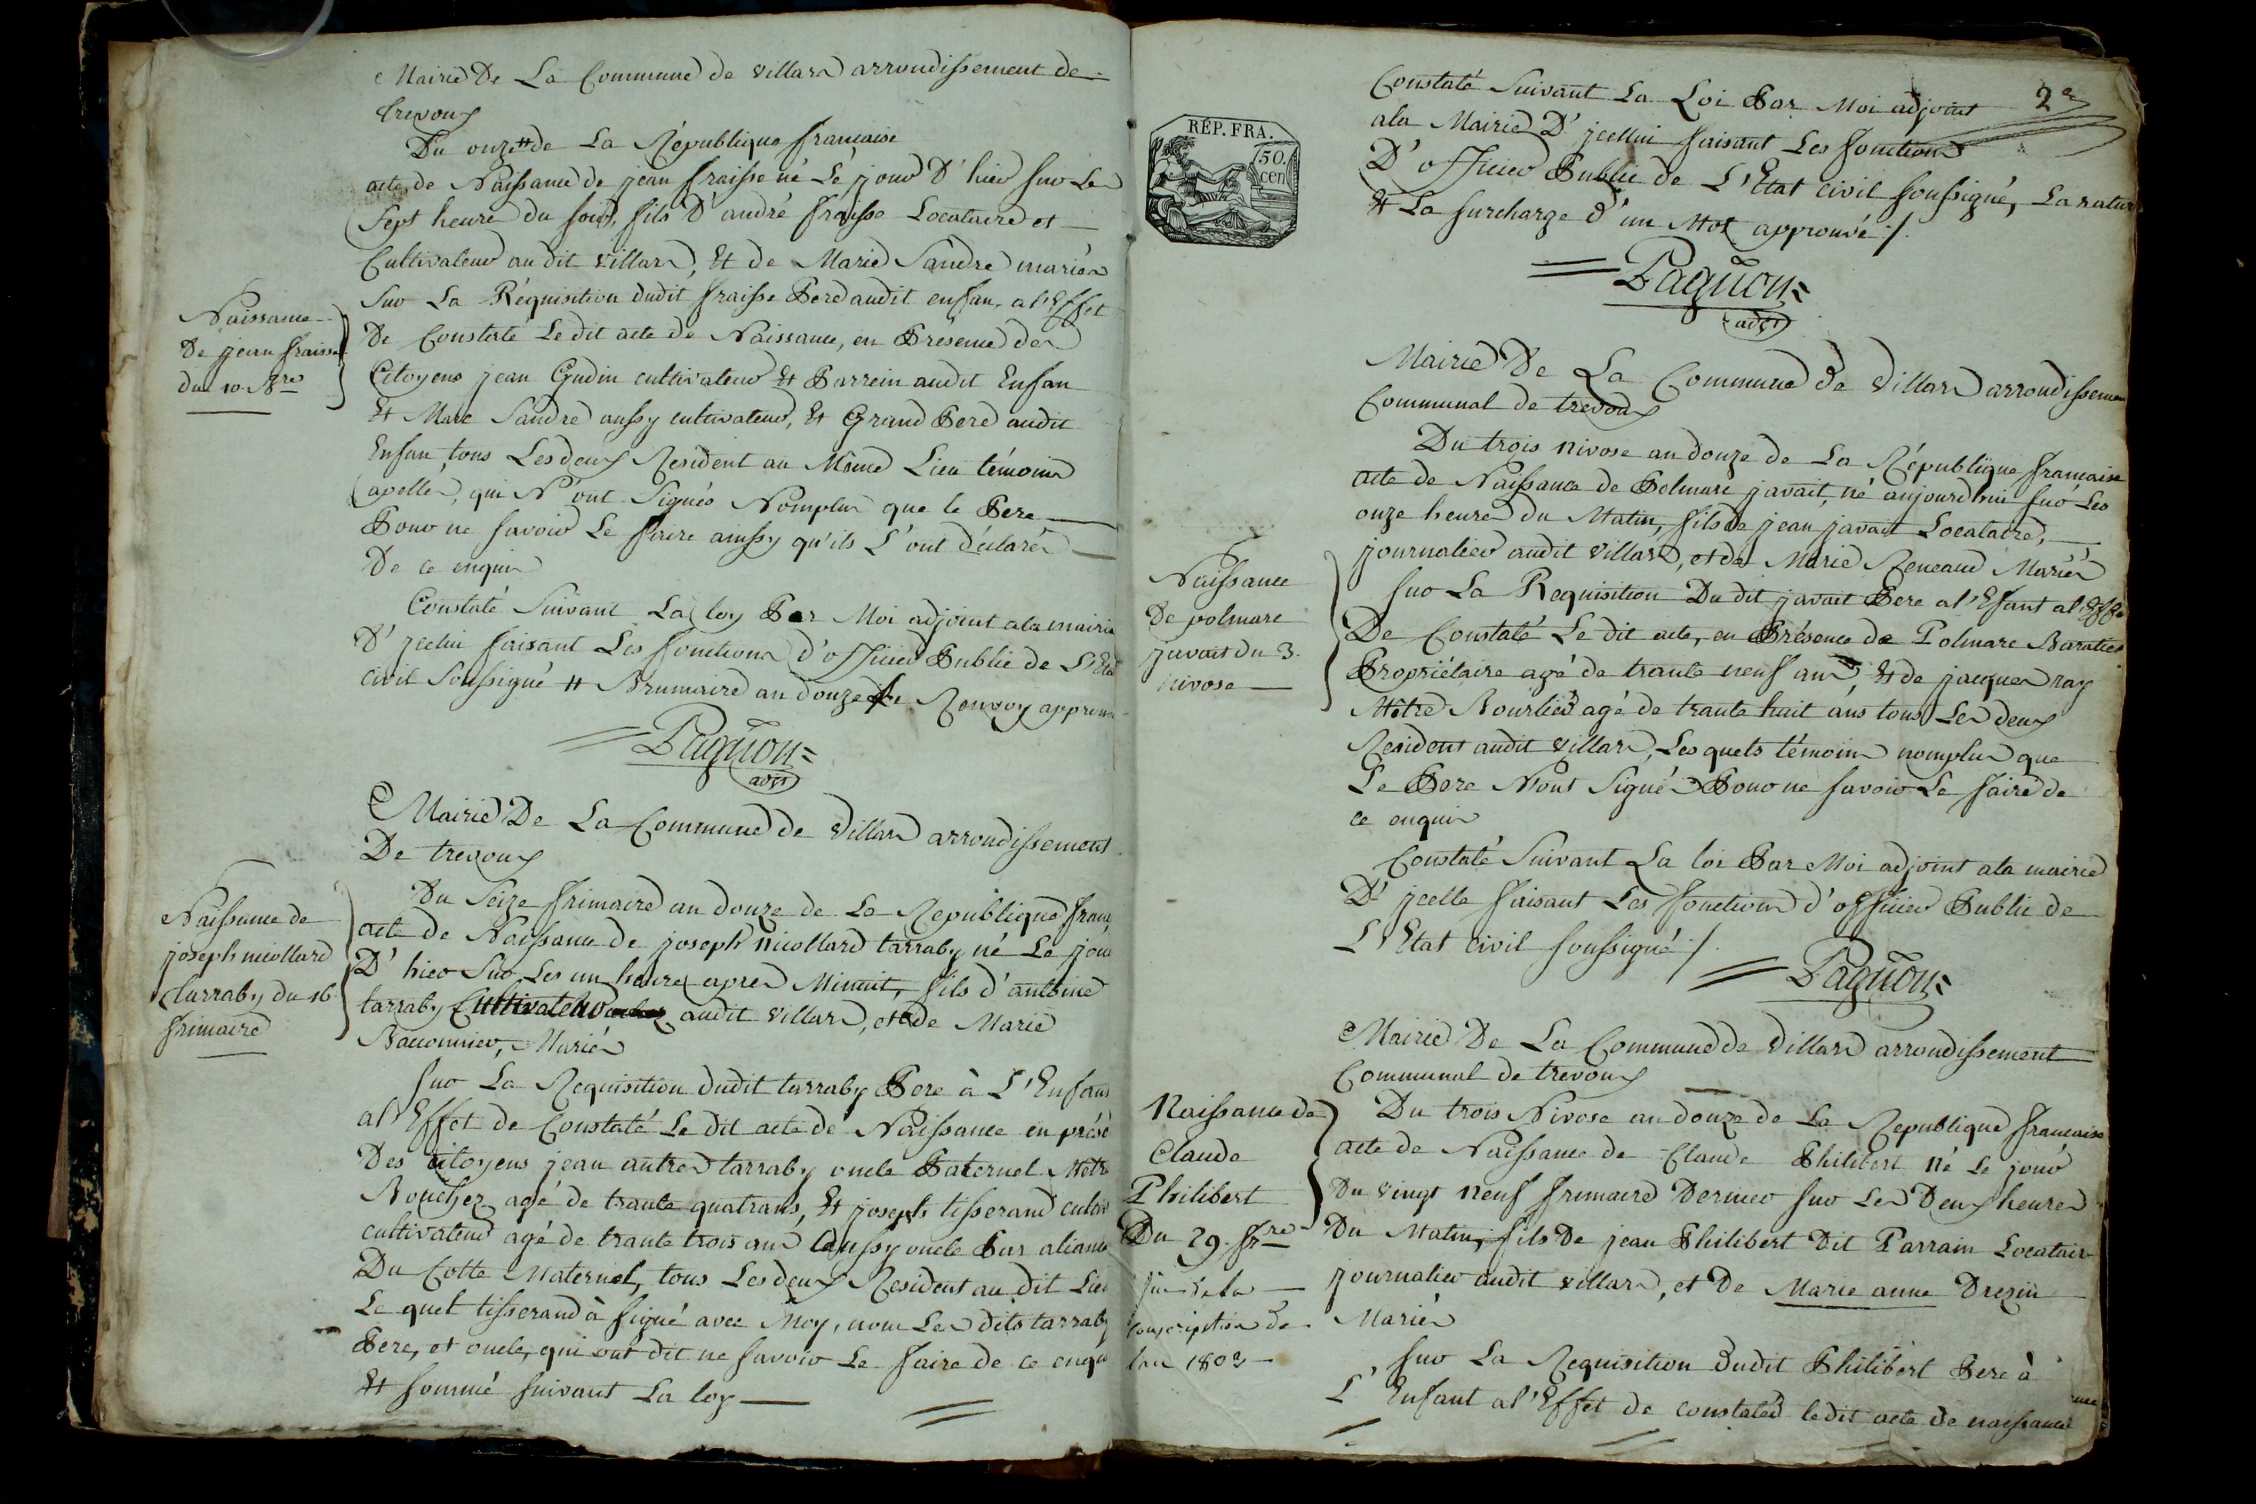 Mairie De La Commune de villars arrondissement de
trevoux
Du onze # de La République francaise
acte de Naissance de jean fraisse né Lé jour D'hier sur Les
Sept heure du soir, fils D'andré fraisse Locataire et
Cultivateur au dit villars, Et de Marie Sandre mariés
Naissance
De jean fraisse
du 10 Bre
Sur La Réquisition dudit fraisse Pere audit enfan, a l'Effet
De Constaté Le dit acte de Naissance, en Présence des
Citoyens jean Gudin cultivateur Et Parrein audit Enfan
Et Marc Sandre aussy cultivateur, Et Grand Pere audit
Enfan, tous Les deux Resident au Même Lieu témoins
apellés, qui N'ont Signés Nomplus que le Pere
Pour ne savoir Le faire ainssy qu'ils L'ont déclarés
De ce enquis
Constaté Suivant La loy Par Moi adjoint ala mairie
D'jcelui faisant Les fonctions d'officier Public de L'Etat
civil Soussigné # Brumaire an douze Renvoy approuvé
= Paguon =
adjt
Mairie De La Commune de villars arrondissement
De trevoux
Naissance de
joseph nicollard
tarraby du 16
frimaire
Du Seize frimaire an douze de La Republique franç
acte de Naissance de joseph nicollard tarraby né Le jour
D'hier Sur Les un heure apres Minuit, fils d'antoine
tarraby Cultivateur audit villars, et de Marie
Mariés
sur La Requisition dudit tarraby Pere à L'Enfant
al'Effet de Constaté Le dit acte de Naissance en présé
Des citoyens jean autres tarraby oncle Paternel Mètre
Boucher agé de trante quatrans, Et joseph tisserand
cultivateur agé de trante trois ans aussy oncle Par aliance
Du Cotte Maternel, tous Les deux Resident au dit Lieu
Le quel tisserand à signé avec Moy, non Les dits tarraby
Pere, et oncle, qui ont dit ne savoir Le faire de ce enquis
Et sommé suivant La loy
2e
RÉP. FRA.
50.
cen
Constaté Suivant La Loi Par Moi adjoint
ala Mairie D'jcellui faisant Les fonctions
D'officier Public de L'Etat civil soussigné, La ratur
Et La surcharge d'un Mot approuvé ./.
= Paguon =
adjt
Mairie De La Commune de villars arrondissemen
Communal de trevoux
Naissance
De polmare
javait du 3
nivose
Du trois nivose an douze de La République francaise
acte de Naissance de Polmare javait, né aujourdhui sur Les
onze heures du Matin, fils de jean javait Locataire,
journalier audit villars, et de Marie Reneaud Mariés
sur La Requisition Du dit javait Pere a l'Efant al'Effet
De Constaté Le dit acte, en Présence de Polmare Baratier
Propriétaire agé de trante neuf ans, Et de jacques ray
Mètre Bourlier agé de trante huit ans tous Les deux
Resident audit villars, Les quels témoins nomplus que
Le Pere N'ont Signé Pour ne savoir Le faire de
ce enquis
Constaté Suivant La loi Par Moi adjoint ala mairie
D'jcelle faisant Les fonctions d'officier Public de
L'Etat civil soussigné ./.
= Paguon =
Mairie De La Commune de villars arrondissement
Communal de trevoux
Naissance de
Claude
Philibert
Du 29. fre
de la
conscription de
lan 1803
Du trois Nivose an douze de La Republique francaise
acte de Naissance de Claude Philibert né Le jour
Du vingt neuf frimaire Dernier sur Les Deux heures
Du Matin, fils De jean Philibert Dit Parrain Locatair
journalier audit villars, et De Marie anne Drezin
Mariés
sur La Requisition Dudit Philibert Pere à
L'Enfant a l'Effet de constater ledit acte de naissance